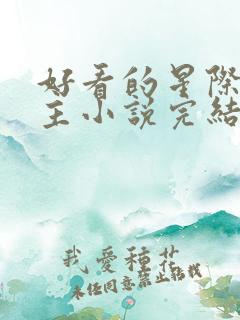 好看的星際
主小說完結
我愛種花
未经同意禁止转载